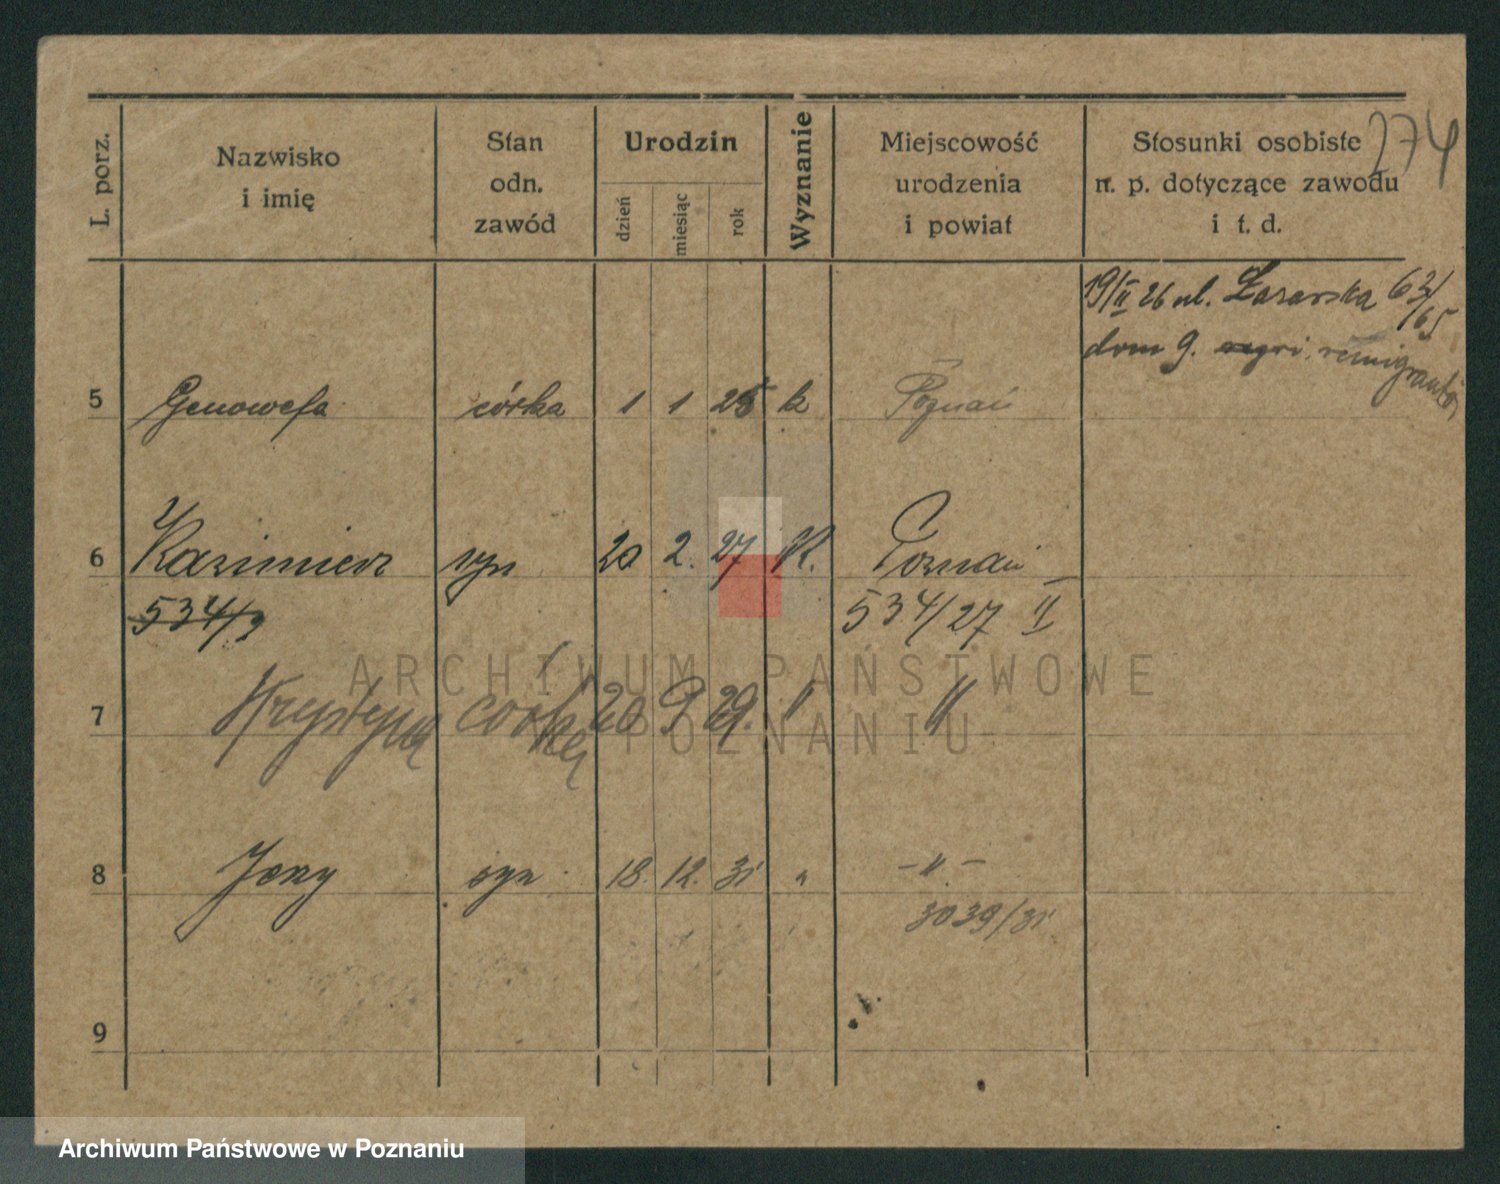 274
L. porz.
Nazwisko
i imię
Stan
odn.
zawód
Urodzin
dzień
miesiąc
rok
Wyznanie
Miejscowość
urodzenia
i powiat
Stosunki osobiste
n. p. dotyczące zawodu
i t. d.
19/II 26 ul. Łazarska 63/65
dom 9. remigrantów
5 Genowefa córka 1 1 25 k Poznań
6 Kazimierz syn 20 2. 27 K. Poznań
534/2 534/27 II
7 Krystyna córka 20 9 29. " "
8 Jerzy syn 18. 12. 31 " – " –
3039/31
9
ARCHIWUM PAŃSTWOWE
W POZNANIU
Archiwum Państwowe w Poznaniu